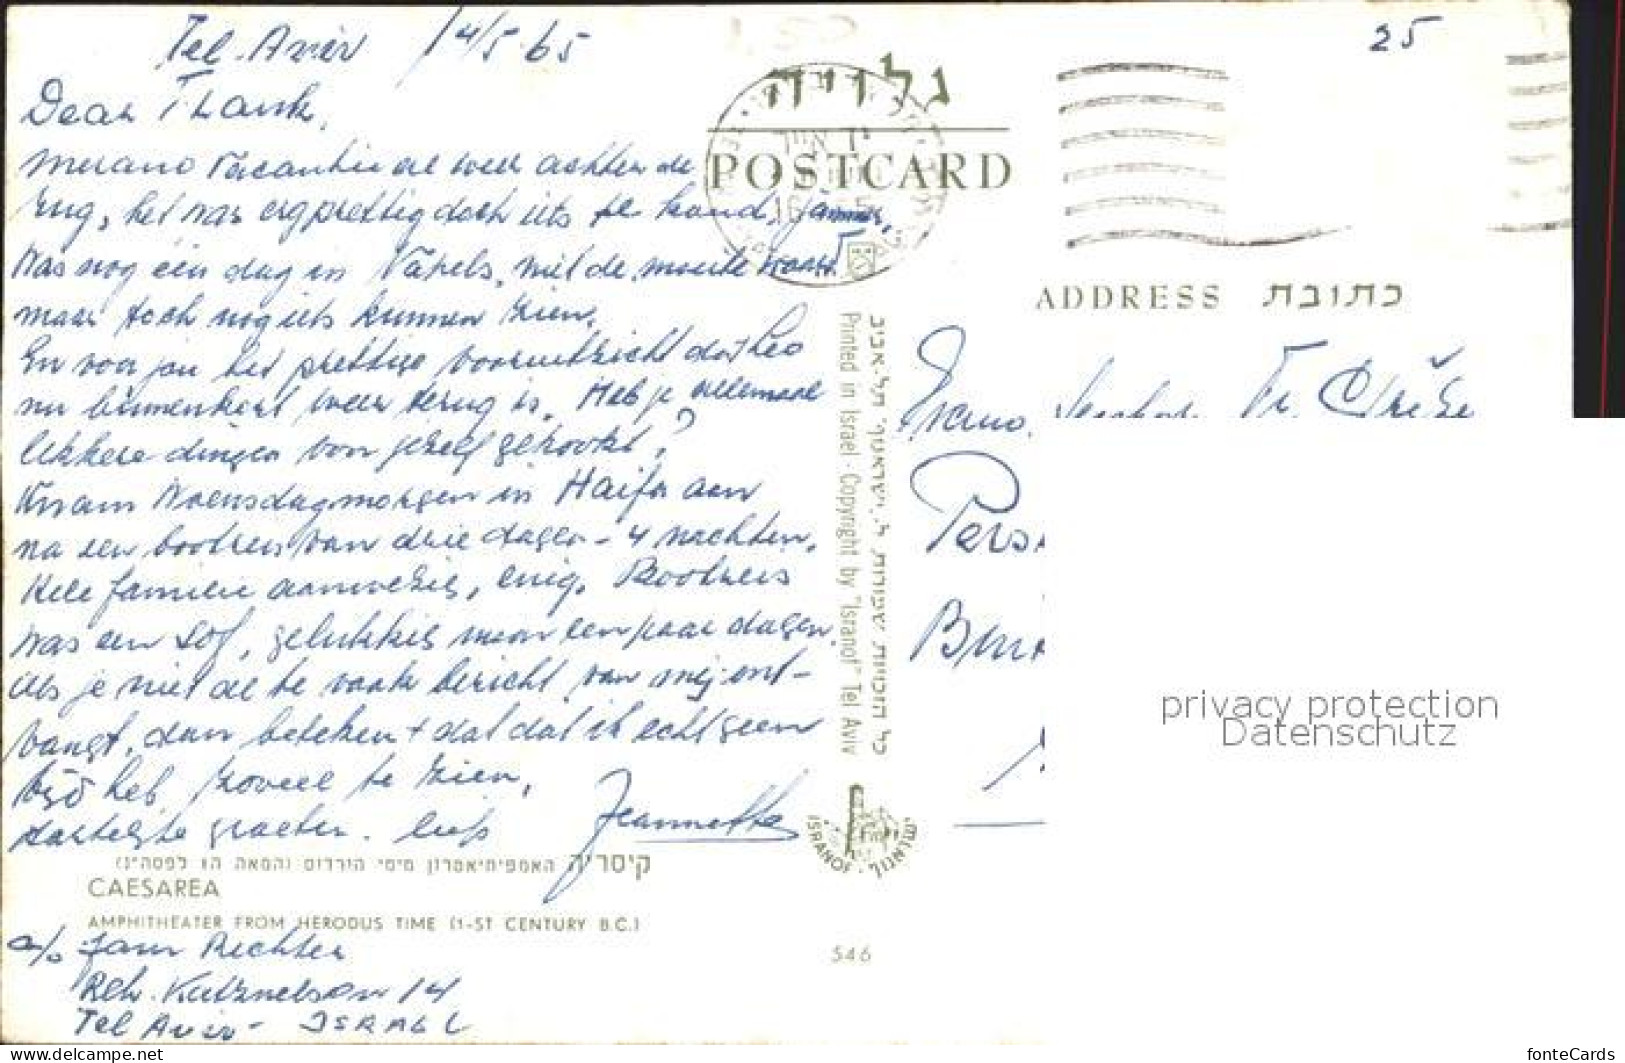 Tel. Aviv 14/5 65
Dear Frank,
Merano vacantie al weer achter de
rug, het was erg prettig doch iets te koud, jammer,
Was nog één dag in Napels, niet de moeite waard
maar toch nog iets kunnen zien.
En voor jou het prettige vooruitzicht dat Leo
nu binnenkort weer terug is. Heb je allemaal
lekkere dingen voor jezelf gekookt?
Kwam Woensdagmorgen in Haifa aan
na een bootreis van drie dagen - 4 nachten.
Hele familie aanwezig, enig. Bootreis
was een sof, gelukkig maar een paar dagen.
Als je niet al te vaak bericht van mij ont-
vangt, dan betekent dat dat ik echt geen
tijd heb, zoveel te zien,
hartelijke groeten. liefs Jeannette
קיסריה האמפיתיאטרון מימי הורדוס (המאה ה1 לפסה״נ)
CAESAREA
AMPHITHEATER FROM HERODUS TIME (1-ST CENTURY B.C.)
c/o Fam Richter
Reh. Katznelson 14
Tel Aviv - ISRAEL
546
גלויה
POSTCARD
25
ADDRESS כתובת
Printed in Israel · Copyright by "Isranof" Tel Aviv
ISRANOF · ישראנוף
Fr.
privacy protection
Datenschutz
fonteCards